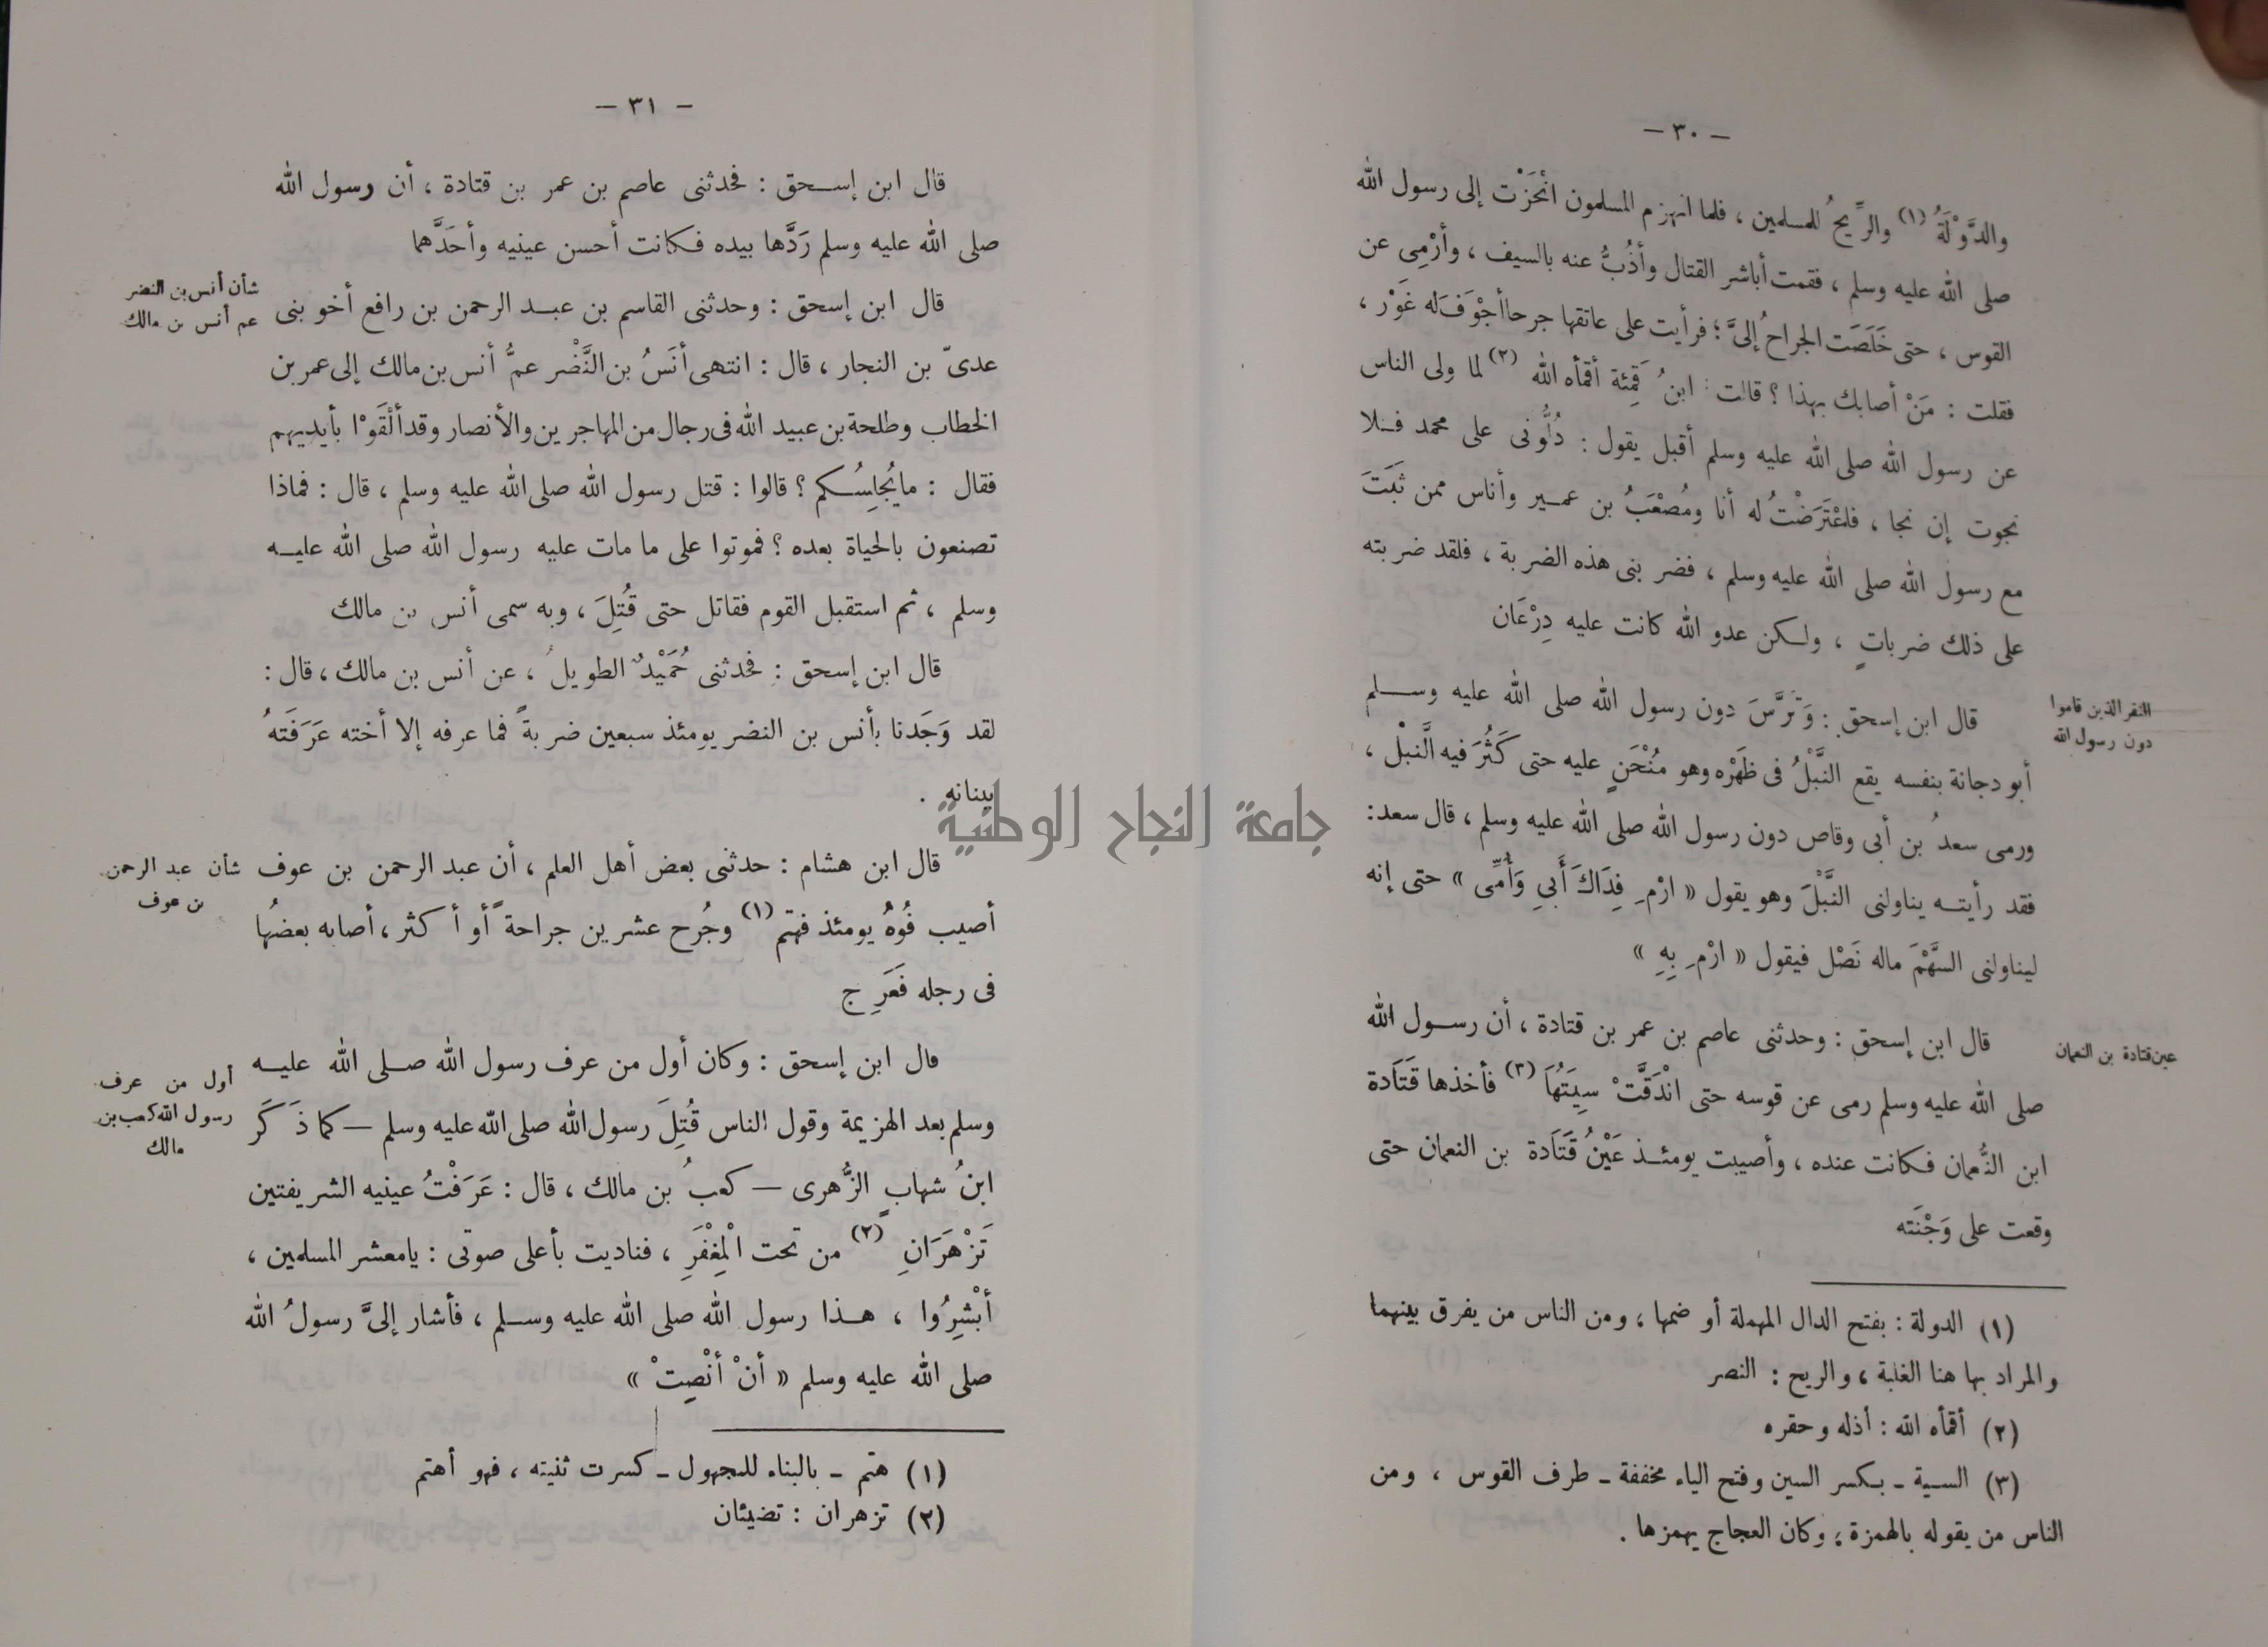 — ٣٠ —
والدَّوْلَةُ (١) والرِّيحُ للمسلمين ، فلما انهزم المسلمون انْحَزْت إلى رسول الله
صلى الله عليه وسلم ، فقمت أباشر القتال وأذُبُّ عنه بالسيف ، وأرْمِى عن
القوس ، حتى خَلَصَت الجراحُ إلىَّ ؛ فرأيت على عاتقها جرحا أجْوَفَ له غَوْر ،
فقلت : مَنْ أصابك بهذا ؟ قالت : ابنُ قَمِئة أقمأه الله (٢) لما ولى الناس
عن رسول الله صلى الله عليه وسلم أقبل يقول : دُلُّونى على محمد فلا
نجوت إن نجا ، فاعْتَرَضْتُ له أنا ومُصْعَبُ بن عمير وأناس ممن ثَبَتَ
مع رسول الله صلى الله عليه وسلم ، فضربنى هذه الضربة ، فلقد ضربته
على ذلك ضرباتٍ ، ولكن عدو الله كانت عليه دِرْعَان
النفر الذين قاموا
دون رسول الله
قال ابن إسحق : وَتَرَّسَ دون رسول الله صلى الله عليه وسلم
أبو دجانة بنفسه يقع النَّبْلُ فى ظَهْره وهو مُنْحَنٍ عليه حتى كَثُرَ فيه النَّبْل ،
ورمى سعدُ بن أبى وقاص دون رسول الله صلى الله عليه وسلم ، قال سعد :
فقد رأيته يناولنى النَّبْلَ وهو يقول « ارْمِ فِدَاكَ أَبِى وَأُمِّى » حتى إنه
ليناولنى السهْمَ ماله نَصْل فيقول « ارْمِ بِهِ »
عين قتادة بن النعمان
قال ابن إسحق : وحدثنى عاصم بن عمر بن قتادة ، أن رسول الله
صلى الله عليه وسلم رمى عن قوسه حتى انْدَقَّتْ سِيَتُهَا (٣) فأخذها قَتَادة
ابن النُّعمان فكانت عنده ، وأصيبت يومئذ عَيْنُ قَتَادة بن النعمان حتى
وقعت على وَجْنَته
(١) الدولة : بفتح الدال المهملة أو ضمها ، ومن الناس من يفرق بينهما
والمراد بها هنا الغلبة ، والريح : النصر
(٢) أقمأه الله : أذله وحقره
(٣) السية - بكسر السين وفتح الياء مخففة - طرف القوس ، ومن
الناس من يقوله بالهمزة ، وكان العجاج يهمزها .
— ٣١ —
قال ابن إسحق : فحدثنى عاصم بن عمر بن قتادة ، أن رسول الله
صلى الله عليه وسلم رَدَّها بيده فكانت أحسن عينيه وأحَدَّهما
شأن أنس بن النضر
عم أنس بن مالك
قال ابن إسحق : وحدثنى القاسم بن عبد الرحمن بن رافع أخو بنى
عدىّ بن النجار ، قال : انتهى أنَسُ بن النَّضْر عمُّ أنس بن مالك إلى عمر بن
الخطاب وطلحة بن عبيد الله فى رجال من المهاجرين والأنصار وقد ألْقَوْا بأيديهم
فقال : ما يُجلِسُكم ؟ قالوا : قتل رسول الله صلى الله عليه وسلم ، قال : فماذا
تصنعون بالحياة بعده ؟ فموتوا على ما مات عليه رسول الله صلى الله عليه
وسلم ، ثم استقبل القوم فقاتل حتى قُتِلَ ، وبه سمى أنس بن مالك
قال ابن إسحق : فحدثنى حُمَيْدٌ الطويلُ ، عن أنس بن مالك ، قال :
لقد وَجَدنا بأنس بن النضر يومئذ سبعين ضربةً فما عرفه إلا أخته عَرَفَتهُ
ببنانه .
جامعة النجاح الوطنية
شأن عبد الرحمن
بن عوف
قال ابن هشام : حدثنى بعض أهل العلم ، أن عبد الرحمن بن عوف
أصيب فُوهُ يومئذ فهتم (١) وجُرح عشرين جراحةً أو أكثر ، أصابه بعضُها
فى رجله فَعَرِج
أول من عرف
رسول الله كعب بن
مالك
قال ابن إسحق : وكان أول من عرف رسول الله صلى الله عليه
وسلم بعد الهزيمة وقول الناس قُتِلَ رسول الله صلى الله عليه وسلم — كما ذَكَر
ابنُ شهابٍ الزُّهرى — كعبُ بن مالك ، قال : عَرَفْتُ عينيه الشريفتين
تَزْهَرَانِ (٢) من تحت الْمِغْفَرِ ، فناديت بأعلى صوتى : يامعشر المسلمين ،
أبْشِرُوا ، هذا رسول الله صلى الله عليه وسلم ، فأشار إلىَّ رسولُ الله
صلى الله عليه وسلم « أنْ أنْصِتْ »
(١) هتم - بالبناء للمجهول - كسرت ثنيته ، فهو أهتم
(٢) تزهران : تضيئان